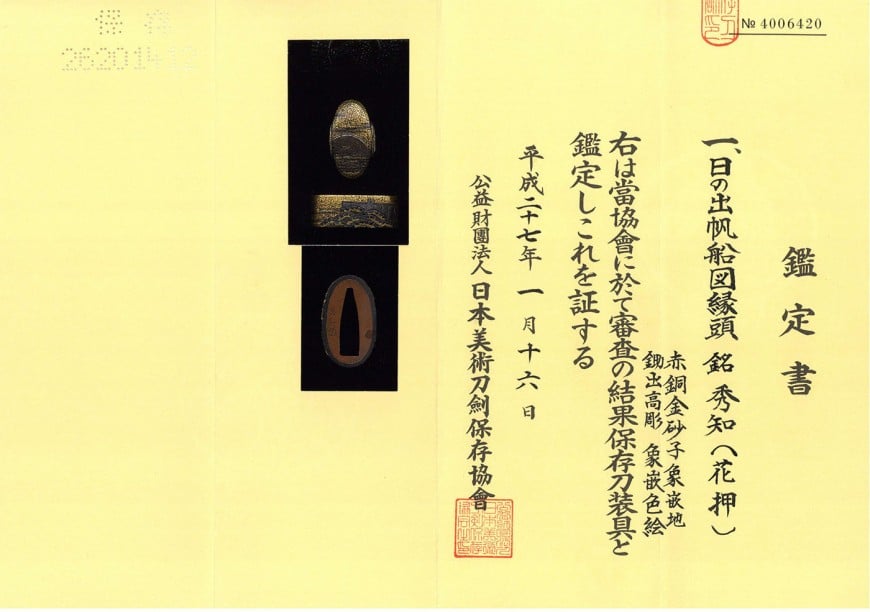 № 4006420
鑑定書
一、日の出帆船図縁頭 銘 秀知(花押)
赤銅金砂子象嵌地
鋤出高彫 象嵌色絵
右は當協會に於て審査の結果保存刀装具と
鑑定しこれを証する
平成二十七年一月十六日
公益財團法人 日本美術刀劍保存協會
保存